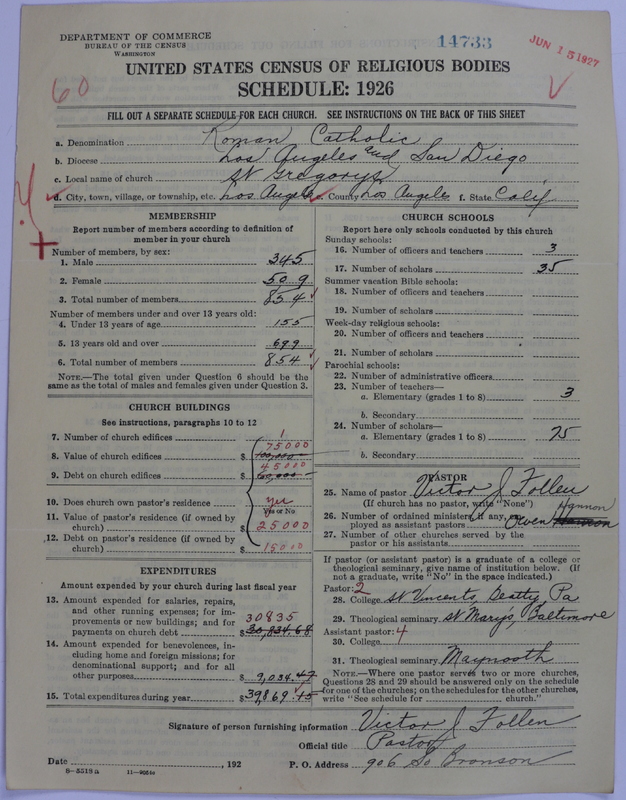 DEPARTMENT OF COMMERCE
BUREAU OF THE CENSUS
WASHINGTON
14733
JUN 15 1927
60
UNITED STATES CENSUS OF RELIGIOUS BODIES
SCHEDULE: 1926
FILL OUT A SEPARATE SCHEDULE FOR EACH CHURCH. SEE INSTRUCTIONS ON THE BACK OF THIS SHEET
a. Denomination Roman Catholic
b. Diocese Los Angeles and San Diego
c. Local name of church St Gregory's
d. City, town, village, or township, etc. Los Angeles e. County Los Angeles f. State Calif
MEMBERSHIP
Report number of members according to definition of
member in your church
Number of members, by sex:
1. Male 345
2. Female 509
3. Total number of members 854
Number of members under and over 13 years old:
4. Under 13 years of age 155
5. 13 years old and over 699
6. Total number of members 854
NOTE.—The total given under Question 6 should be the
same as the total of males and females given under Question 3.
CHURCH BUILDINGS
See instructions, paragraphs 10 to 12
7. Number of church edifices 1
75000
8. Value of church edifices $ 100,000
45000
9. Debt on church edifices $ 60,000
10. Does church own pastor's residence yes
Yes or No
11. Value of pastor's residence (if owned by
church) $ 25000
12. Debt on pastor's residence (if owned by
church) $ 15000
EXPENDITURES
Amount expended by your church during last fiscal year
13. Amount expended for salaries, repairs,
and other running expenses; for im-
provements or new buildings; and for
payments on church debt $ 30,834.68
30835
14. Amount expended for benevolences, in-
cluding home and foreign missions; for
denominational support; and for all
other purposes $ 9,034.47
15. Total expenditures during year $ 39,869.15
CHURCH SCHOOLS
Report here only schools conducted by this church
Sunday schools:
16. Number of officers and teachers 3
17. Number of scholars 35
Summer vacation Bible schools:
18. Number of officers and teachers
19. Number of scholars
Week-day religious schools:
20. Number of officers and teachers
21. Number of scholars
Parochial schools:
22. Number of administrative officers
23. Number of teachers—
a. Elementary (grades 1 to 8) 3
b. Secondary
24. Number of scholars—
a. Elementary (grades 1 to 8) 75
b. Secondary
PASTOR
25. Name of pastor Victor J Follen
(If church has no pastor, write "None")
26. Number of ordained ministers, if any, em-
ployed as assistant pastors Owen Hannon
27. Number of other churches served by the
pastor or his assistants
If pastor (or assistant pastor) is a graduate of a college or
theological seminary, give name of institution below. (If
not a graduate, write "No" in the space indicated.)
Pastor: 2
28. College St Vincents, Beatty, Pa
29. Theological seminary St Mary's, Baltimore
Assistant pastor: 4
30. College
31. Theological seminary Maynooth
NOTE.—Where one pastor serves two or more churches,
Questions 28 and 29 should be answered only on the schedule
for one of the churches; on the schedules for the other churches,
write "See schedule for church."
Signature of person furnishing information Victor J Follen
Official title Pastor
Date , 192 P. O. Address 906 So Bronson
8—5518a 11—9051a